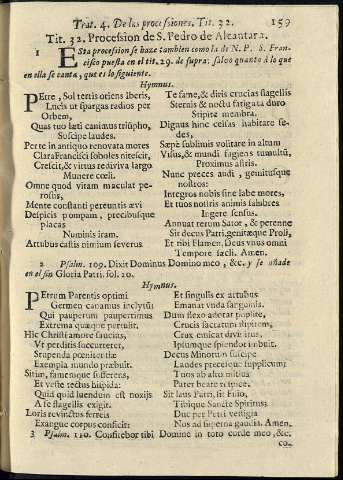 Trat. 4. De las processiones. Tit. 32. 159
Tit. 32. Procession de S. Pedro de Alcantara.
1 Esta procession se haze tambien como la de N. P. S. Fran-
cisco puesta en el tit. 29. de supra: salvo quanto à lo que
en ella se canta, que es lo siguiente.
Hymnus.
Petre, Sol tertis otiens Iberis,
Lucis ut spargas radios per
Orbem,
Quas tuo læti canimus triũpho,
Suscipe laudes.
Per te in antiquo renovata mores
Clara Francisci soboles nitescit,
Crescit, & virtus rediviva largo
Munere cœli.
Omne quod vitam maculat pe-
rosus,
Mente constanti pereuntis ævi
Despicis pompam, precibusque
placas
Numinis iram.
Artubus castis nimium severus
Te fame, & diris crucias flagellis
Sternis & noctu fatigata duro
Stipite membra.
Dignus hinc celsas habitare se-
des,
Sæpè sublimis volitare in altum
Visus, & mundi fugiens tumultũ,
Proximus astris.
Nunc preces audi, gemitusque
nostros:
Integros nobis sine labe mores,
Et tuos nostris animis labores
Ingere sensus.
Annuat rerum Sator, & perenne
Sit decus Patri, genitæque Proli,
Et tibi Flamen, Deus unus omni
Tempore sæcli. Amen.
2 Psalm. 109. Dixit Dominus Domino meo, &c. y se añade
en el fin Gloria Patri. fol. 20.
Hymnus.
Petrum Parentis optimi
Germen canamus inclytũ
Qui pauperum paupertimus
Extrema quæque pertulit.
Hic Christi amore saucius,
Ut perditis succurreret,
Stupenda pœnitentiæ
Exempla mundo præbuit.
Sitim, famemque sufferens,
Et veste tectus hispida:
Quid quid luendum est noxijs
A se flagellis exigit.
Loris revinctus ferreis
Exangue corpus conficit:
Et singulis ex artubus
Emanat unda sanguinis.
Dum flexo adorat poplite,
Crucis facratum stipitem,
Crux emicat divinitus,
Ipsumque splendor imbuit.
Decus Minorum suscipe
Laudes precesque supplicum:
Tuos ab alto militis
Pater beare respice.
Sit laus Patri, sit Filio,
Tibique Sancte Spiritus,
Duc per Petri vestigia
Nos ad superna gaudia. Amen.
3 Psalm. 110. Confitebor tibi Domine in toto corde meo, &c.
co-